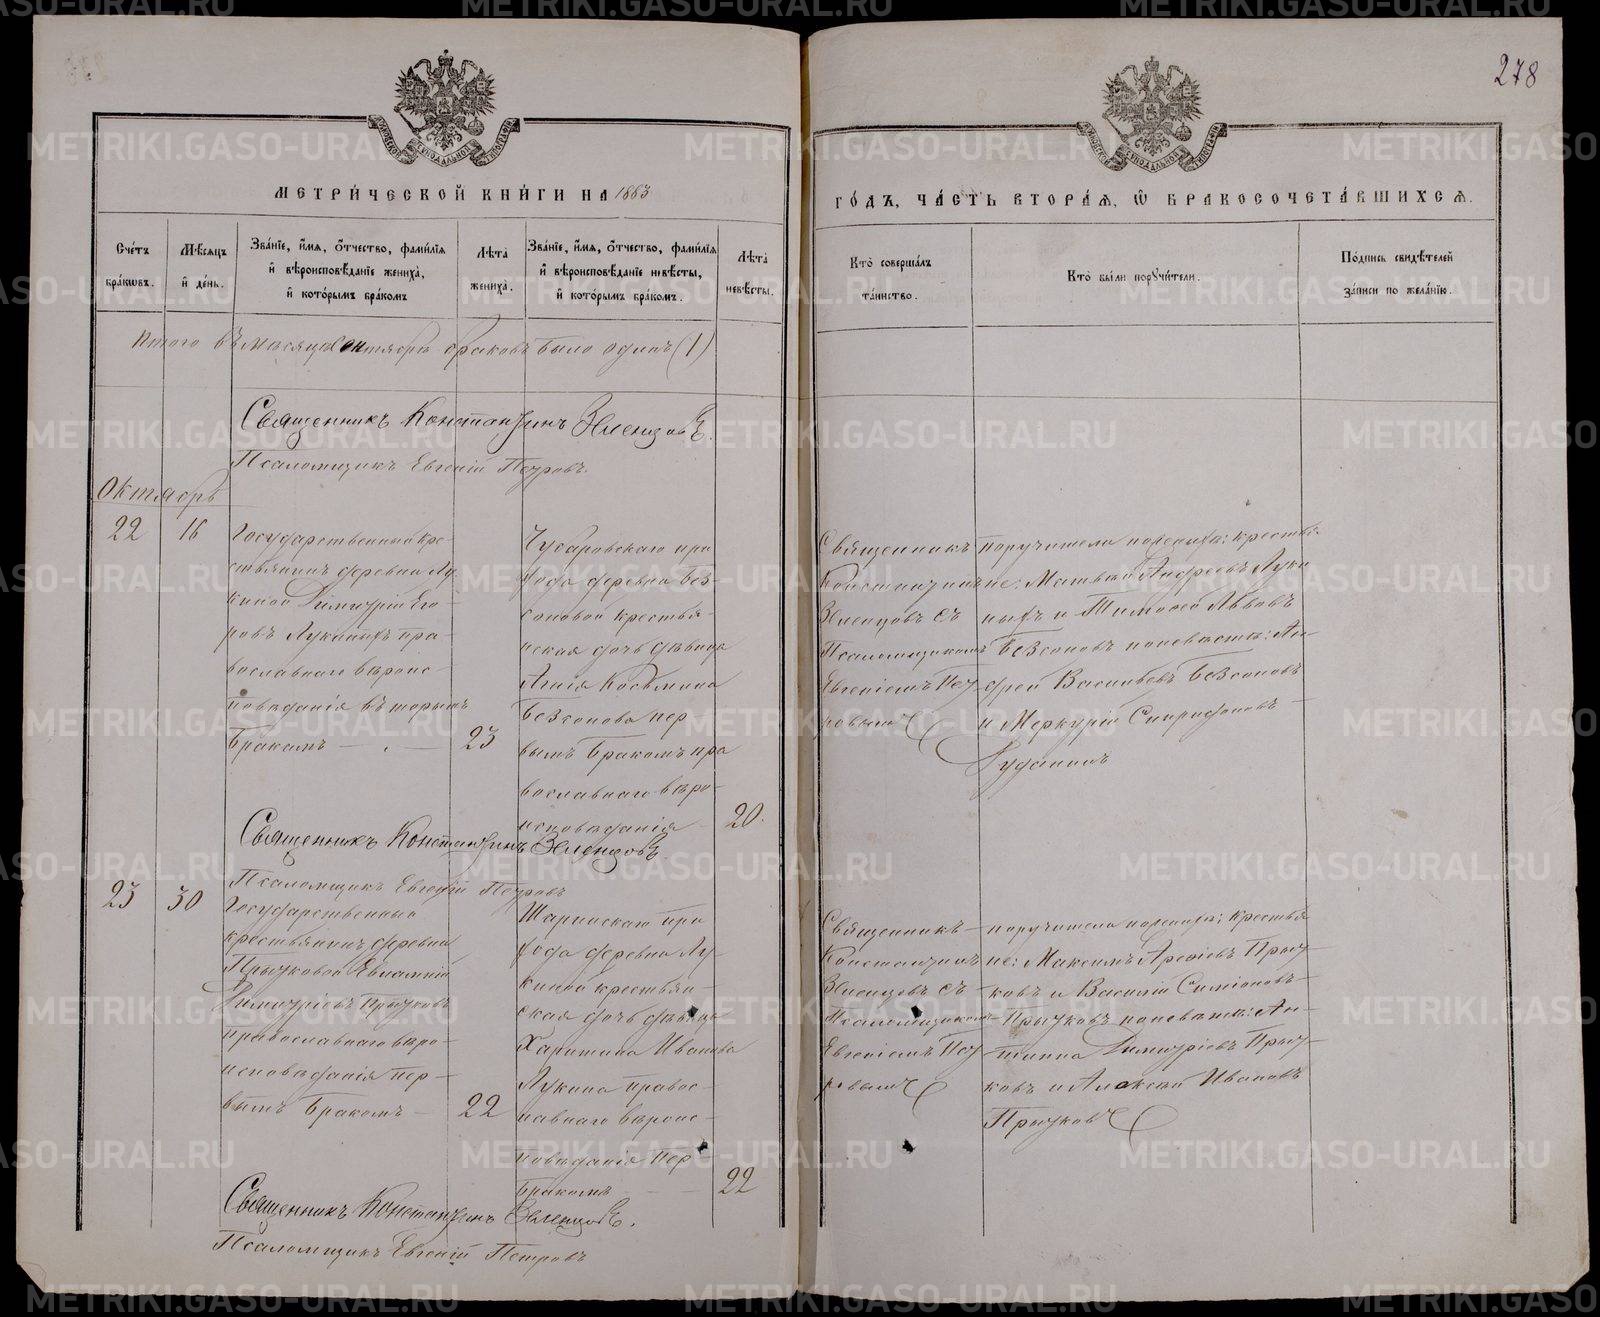 278
МОСКОВСКОЙ СѴНОДАЛЬНОЙ ТИПОГРАФІИ
МОСКОВСКОЙ СѴНОДАЛЬНОЙ ТИПОГРАФІИ
МЕТРИ́ЧЕСКОЙ КНИ́ГИ НА 1883
ГО́ДЪ, ЧА́СТЬ ВТОРА́Я, Ѡ БРАКОСОЧЕТА́ВШИХСЯ.
Сче́тъ бра́кѡвъ.
Мѣ́сяцъ и҆ де́нь.
Зва́нїе, и҆́мѧ, ѻ҆́тчество, фами́лїѧ и҆ вѣроисповѣ́данїе жениха̀, и҆ кото́рымъ бра́комъ
Лѣ́та жениха̀.
Зва́нїе, и҆́мѧ, ѻ҆́тчество, фами́лїѧ и҆ вѣроисповѣ́данїе невѣ́сты, и҆ кото́рымъ бра́комъ.
Лѣ́та невѣ́сты.
Кто̀ соверша́лъ та́инство.
Кто̀ бы́ли порꙋчи́тели.
По́дпись свидѣ́телей за́писи по жела́нїю.
Итого въ месяце октябре браковъ было одинъ (1)
Священникъ Константинъ Земленцовъ.
Псаломщикъ Евгеній Петровъ.
Октябрь
22
16
Государственный кре-
стьянинъ деревни Лу-
киной Димитрій Его-
ровъ Лукиныхъ пра-
вославнаго вероис-
поведанія вторымъ
Бракомъ
23
Чубаровскаго при
хода деревни Без-
соновой крестья-
нская дочь девица
Агнія Косьмина
Безсонова пер
вымъ Бракомъ пра
вославнаго веро-
исповеданія
20.
Священникъ
Константинъ
съ
Псаломщикомъ
Евгеніемъ Пет
ровымъ
поручители по женихе: крестья-
не: Матвей Андреевъ Луки
ныхъ и Тимофей Львовъ
Безсоновъ по невесте: Ан-
дрей Васильевъ Безсоновъ
и Меркурій Спиридоновъ
Священникъ Константинъ
Псаломщикъ Евгеній Петровъ
23
30
Государственный
крестьянинъ деревни
Прытковой Евлампій
Димитріевъ Прытковъ
православнаго веро-
исповеданія пер-
вымъ Бракомъ
22
Шаринскаго при
хода деревни Лу-
киной крестьян-
ская дочь девица
Харитина Иванова
Лукина правос-
лавнаго вероис-
поведанія пер
Бракомъ
22
Священникъ
Константинъ
съ
Псаломщикомъ
Евгеніемъ Пет
ровымъ
поручители по женихе: крестья
не: Максимъ Арефіевъ Прыт
ковъ и Василій Симіоновъ
Прытковъ по невесте: Ан-
типпа Димитріевъ Прыт
ковъ и Алексей Ивановъ
Прытковъ
Священникъ Константинъ
Псаломщикъ Евгеній Петровъ
METRIKI.GASO-URAL.RU